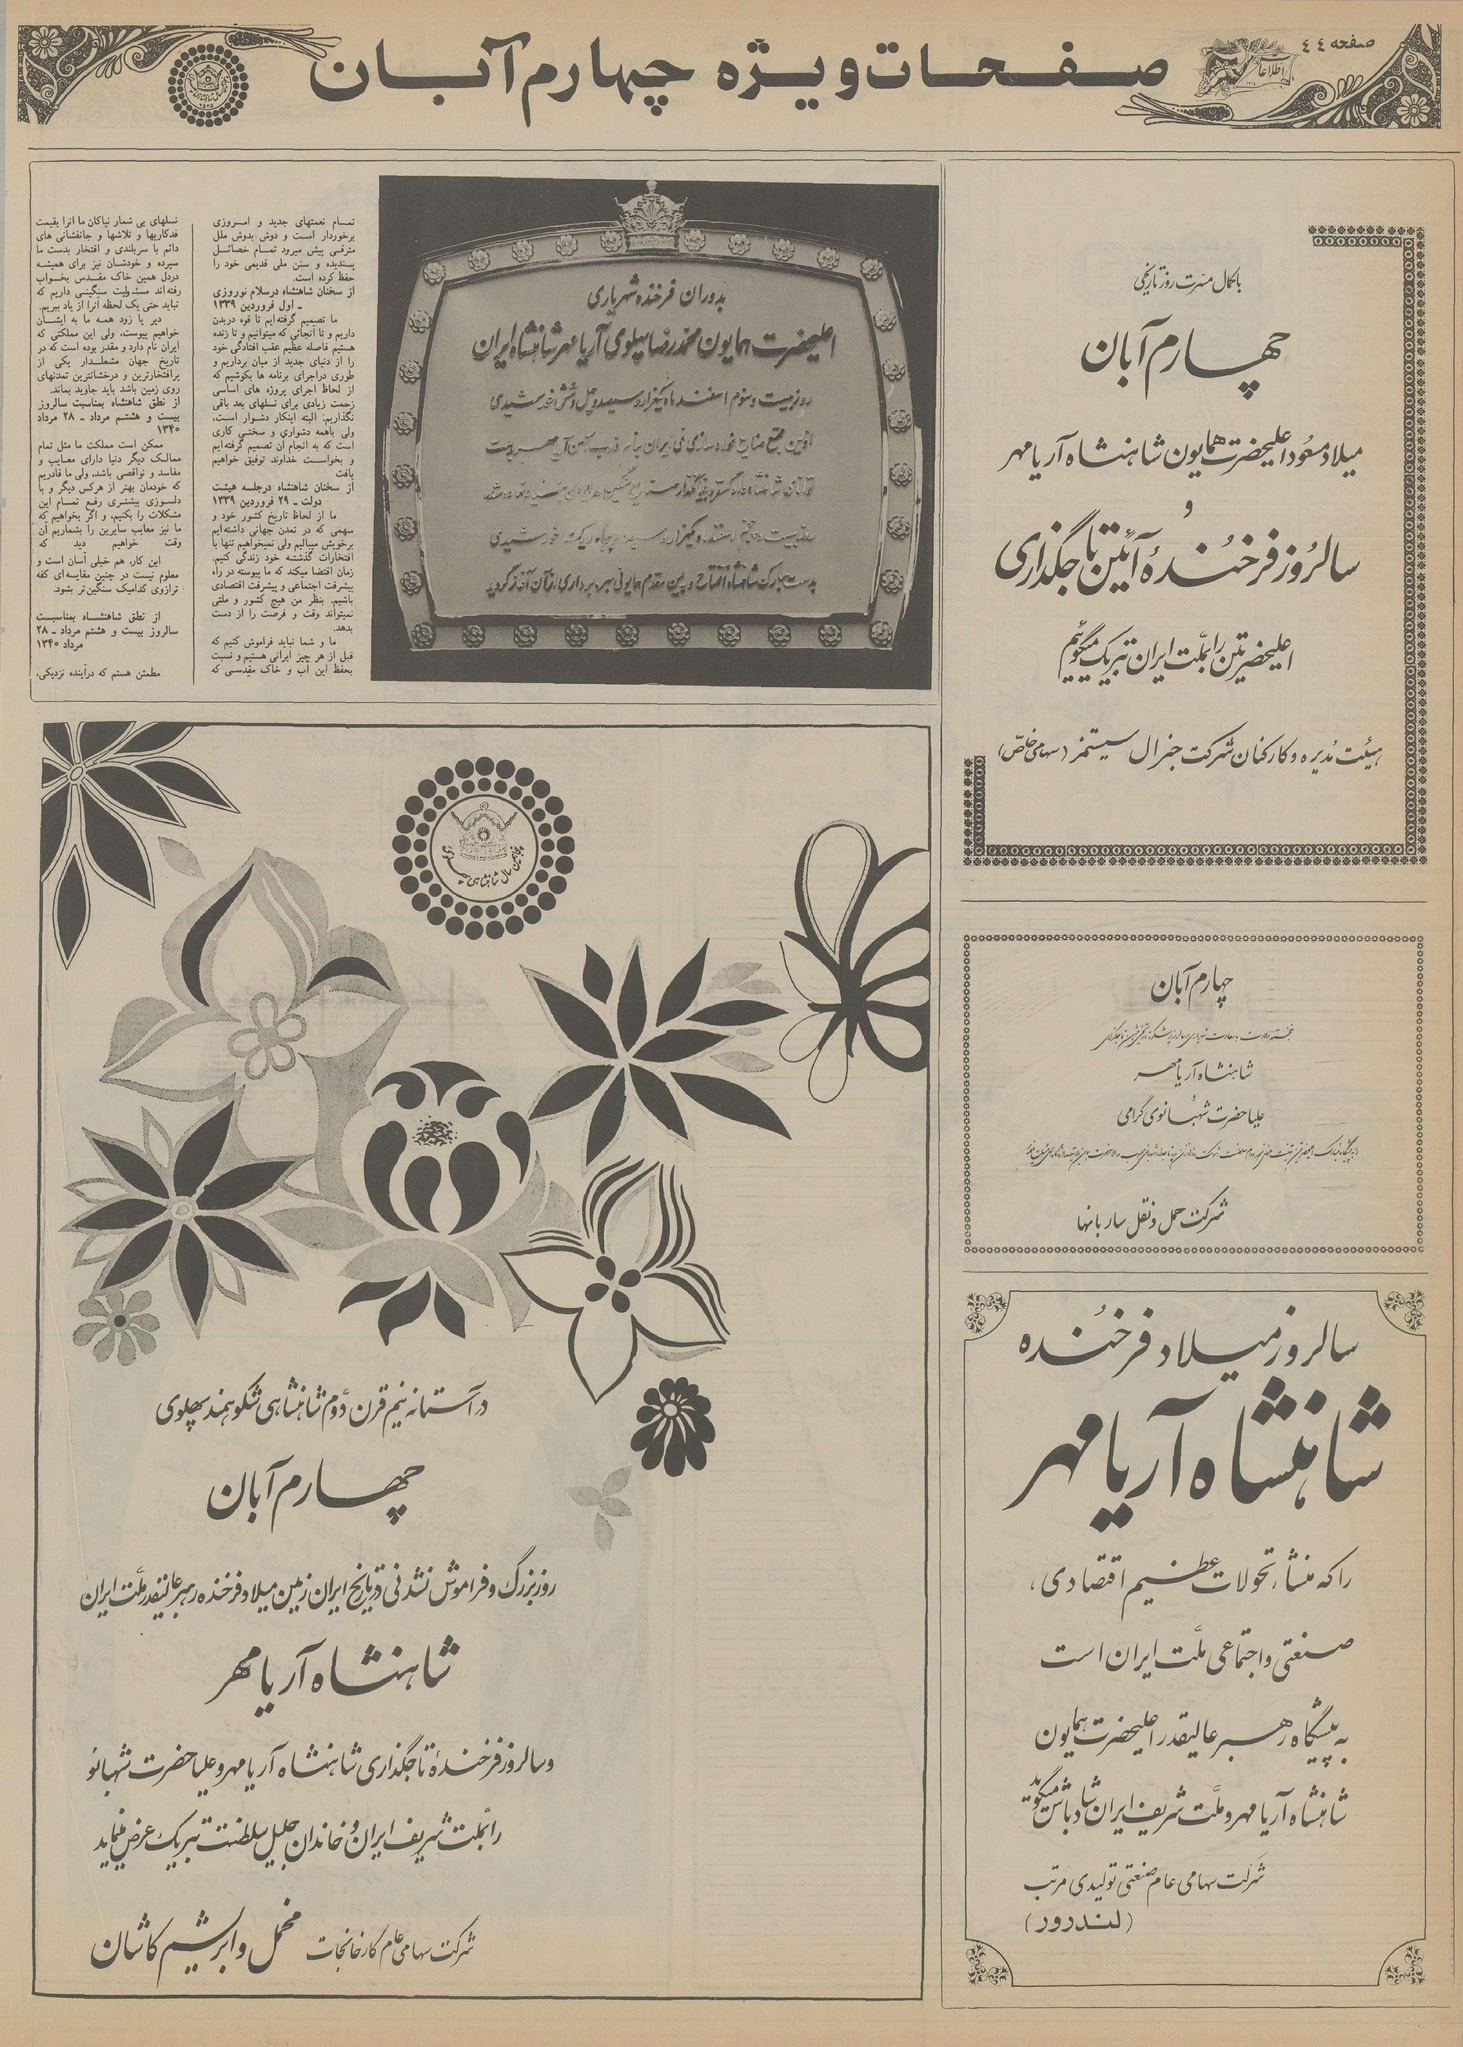 صفحه ٤٤
اطلاعات
صفحات ویژه چهارم آبان
باکمال مسرت روز تاریخی
چهارم آبان
میلاد مسعود اعلیحضرت همایون شاهنشاه آریامهر
و
سالروز فرخندهٔ آئین تاجگذاری
اعلیحضرتین را بملت ایران تبریک میگوئیم
هیئت مدیره و کارکنان شرکت جنرال سیستمز (سهامی خاص)
چهارم آبان
شاهنشاه آریامهر
و
علیاحضرت شهبانوی گرامی
شرکت حمل و نقل ساربانها
سالروز میلاد فرخنده
شاهنشاه آریامهر
را که منشاء تحولات عظیم اقتصادی،
صنعتی و اجتماعی ملت ایران است
به پیشگاه رهبر عالیقدر اعلیحضرت همایون
شاهنشاه آریامهر و ملت شریف ایران شادباش میگوید
شرکت سهامی عام صنعتی تولیدی مرتب
(لندرور)
بدوران فرخنده شهریاری
اعلیحضرت همایون محمدرضا پهلوی آریامهر شاهنشاه ایران
روز بیست و سوم اسفند ماه یکهزار و سیصد و چهل و شش خورشیدی
تمام نعمتهای جدید و امروزی
برخوردار است و دوش بدوش ملل
مترقی پیش میرود تمام خصائل
پسندیده و سنن ملی قدیمی خود را
حفظ کرده است.
از سخنان شاهنشاه درسلام نوروزی
ـ اول فروردین ۱۳۳۹
ما تصمیم گرفته‌ایم تا قوه دربدن
داریم و تا آنجائی که میتوانیم و تا زنده
هستیم فاصله عظیم عقب افتادگی خود
را از دنیای جدید از میان برداریم و
طوری دراجرای برنامه ها بکوشیم که
از لحاظ اجرای پروژه های اساسی
زحمت زیادی برای نسلهای بعد باقی
نگذاریم: البته اینکار دشوار است،
ولی باهمه دشواری و سختی کاری
است که به انجام آن تصمیم گرفته‌ایم
و بخواست خداوند توفیق خواهیم
یافت
از سخنان شاهنشاه درجلسه هیئت
دولت ـ ۲۹ فروردین ۱۳۳۹
ما از لحاظ تاریخ کشور خود و
سهمی که در تمدن جهانی داشته‌ایم
برخویش میبالیم ولی نمیخواهیم تنها با
افتخارات گذشته خود زندگی کنیم.
زمان اقتضا میکند که ما پیوسته در راه
پیشرفت اجتماعی و پیشرفت اقتصادی
باشیم. بنظر من هیچ کشور و ملتی
نمیتواند وقت و فرصت را از دست
بدهد.
ما و شما نباید فراموش کنیم که
قبل از هر چیز ایرانی هستیم و نسبت
بحفظ این آب و خاک مقدسی که
نسلهای بی شمار نیاکان ما آنرا بقیمت
فدکاریها و تلاشها و جانفشانی های
دائم با سربلندی و افتخار بدست ما
سپرده و خودشان نیز برای همیشه
دردل همین خاک مقدس بخواب
رفته‌اند مسئولیت سنگینی داریم که
نباید حتی یک لحظه آنرا از یاد ببریم.
دیر یا زود همه ما به ایشان
خواهیم پیوست، ولی این مملکتی که
ایران نام دارد و مقدر بوده است که در
تاریخ جهان مشعلدار یکی از
پرافتخارترین و درخشانترین تمدنهای
روی زمین باشد باید جاوید بماند.
از نطق شاهنشاه بمناسبت سالروز
بیست و هشتم مرداد ـ ۲۸ مرداد
۱۳۴۰
ممکن است مملکت ما مثل تمام
ممالک دیگر دنیا دارای معایب و
مفاسد و نواقصی باشد، ولی ما قادریم
که خودمان بهتر از هرکس دیگر و با
دلسوزی بیشتری رفع تمام این
مشکلات را بکنیم، و اگر بخواهیم که
ما نیز معایب سایرین را بشماریم آن
وقت خواهیم دید که
این کار، هم خیلی آسان است و
معلوم نیست در چنین مقایسه‌ای کفه
ترازوی کدامیک سنگین‌تر بشود.
از نطق شاهنشاه بمناسبت
سالروز بیست و هشتم مرداد ـ ۲۸
مرداد ۱۳۴۰
مطمئن هستم که درآینده نزدیکی،
در آستانه نیم قرن دوم شاهنشاهی شکوهمند پهلوی
چهارم آبان
روز بزرگ و فراموش نشدنی در تاریخ ایران زمین میلاد فرخنده رهبر عالیقدر ملت ایران
شاهنشاه آریامهر
و سالروز فرخندهٔ تاجگذاری شاهنشاه آریامهر و علیاحضرت شهبانو
را بملت شریف ایران و خاندان جلیل سلطنت تبریک عرض مینماید
شرکت سهامی عام کارخانجات مخمل و ابریشم کاشان